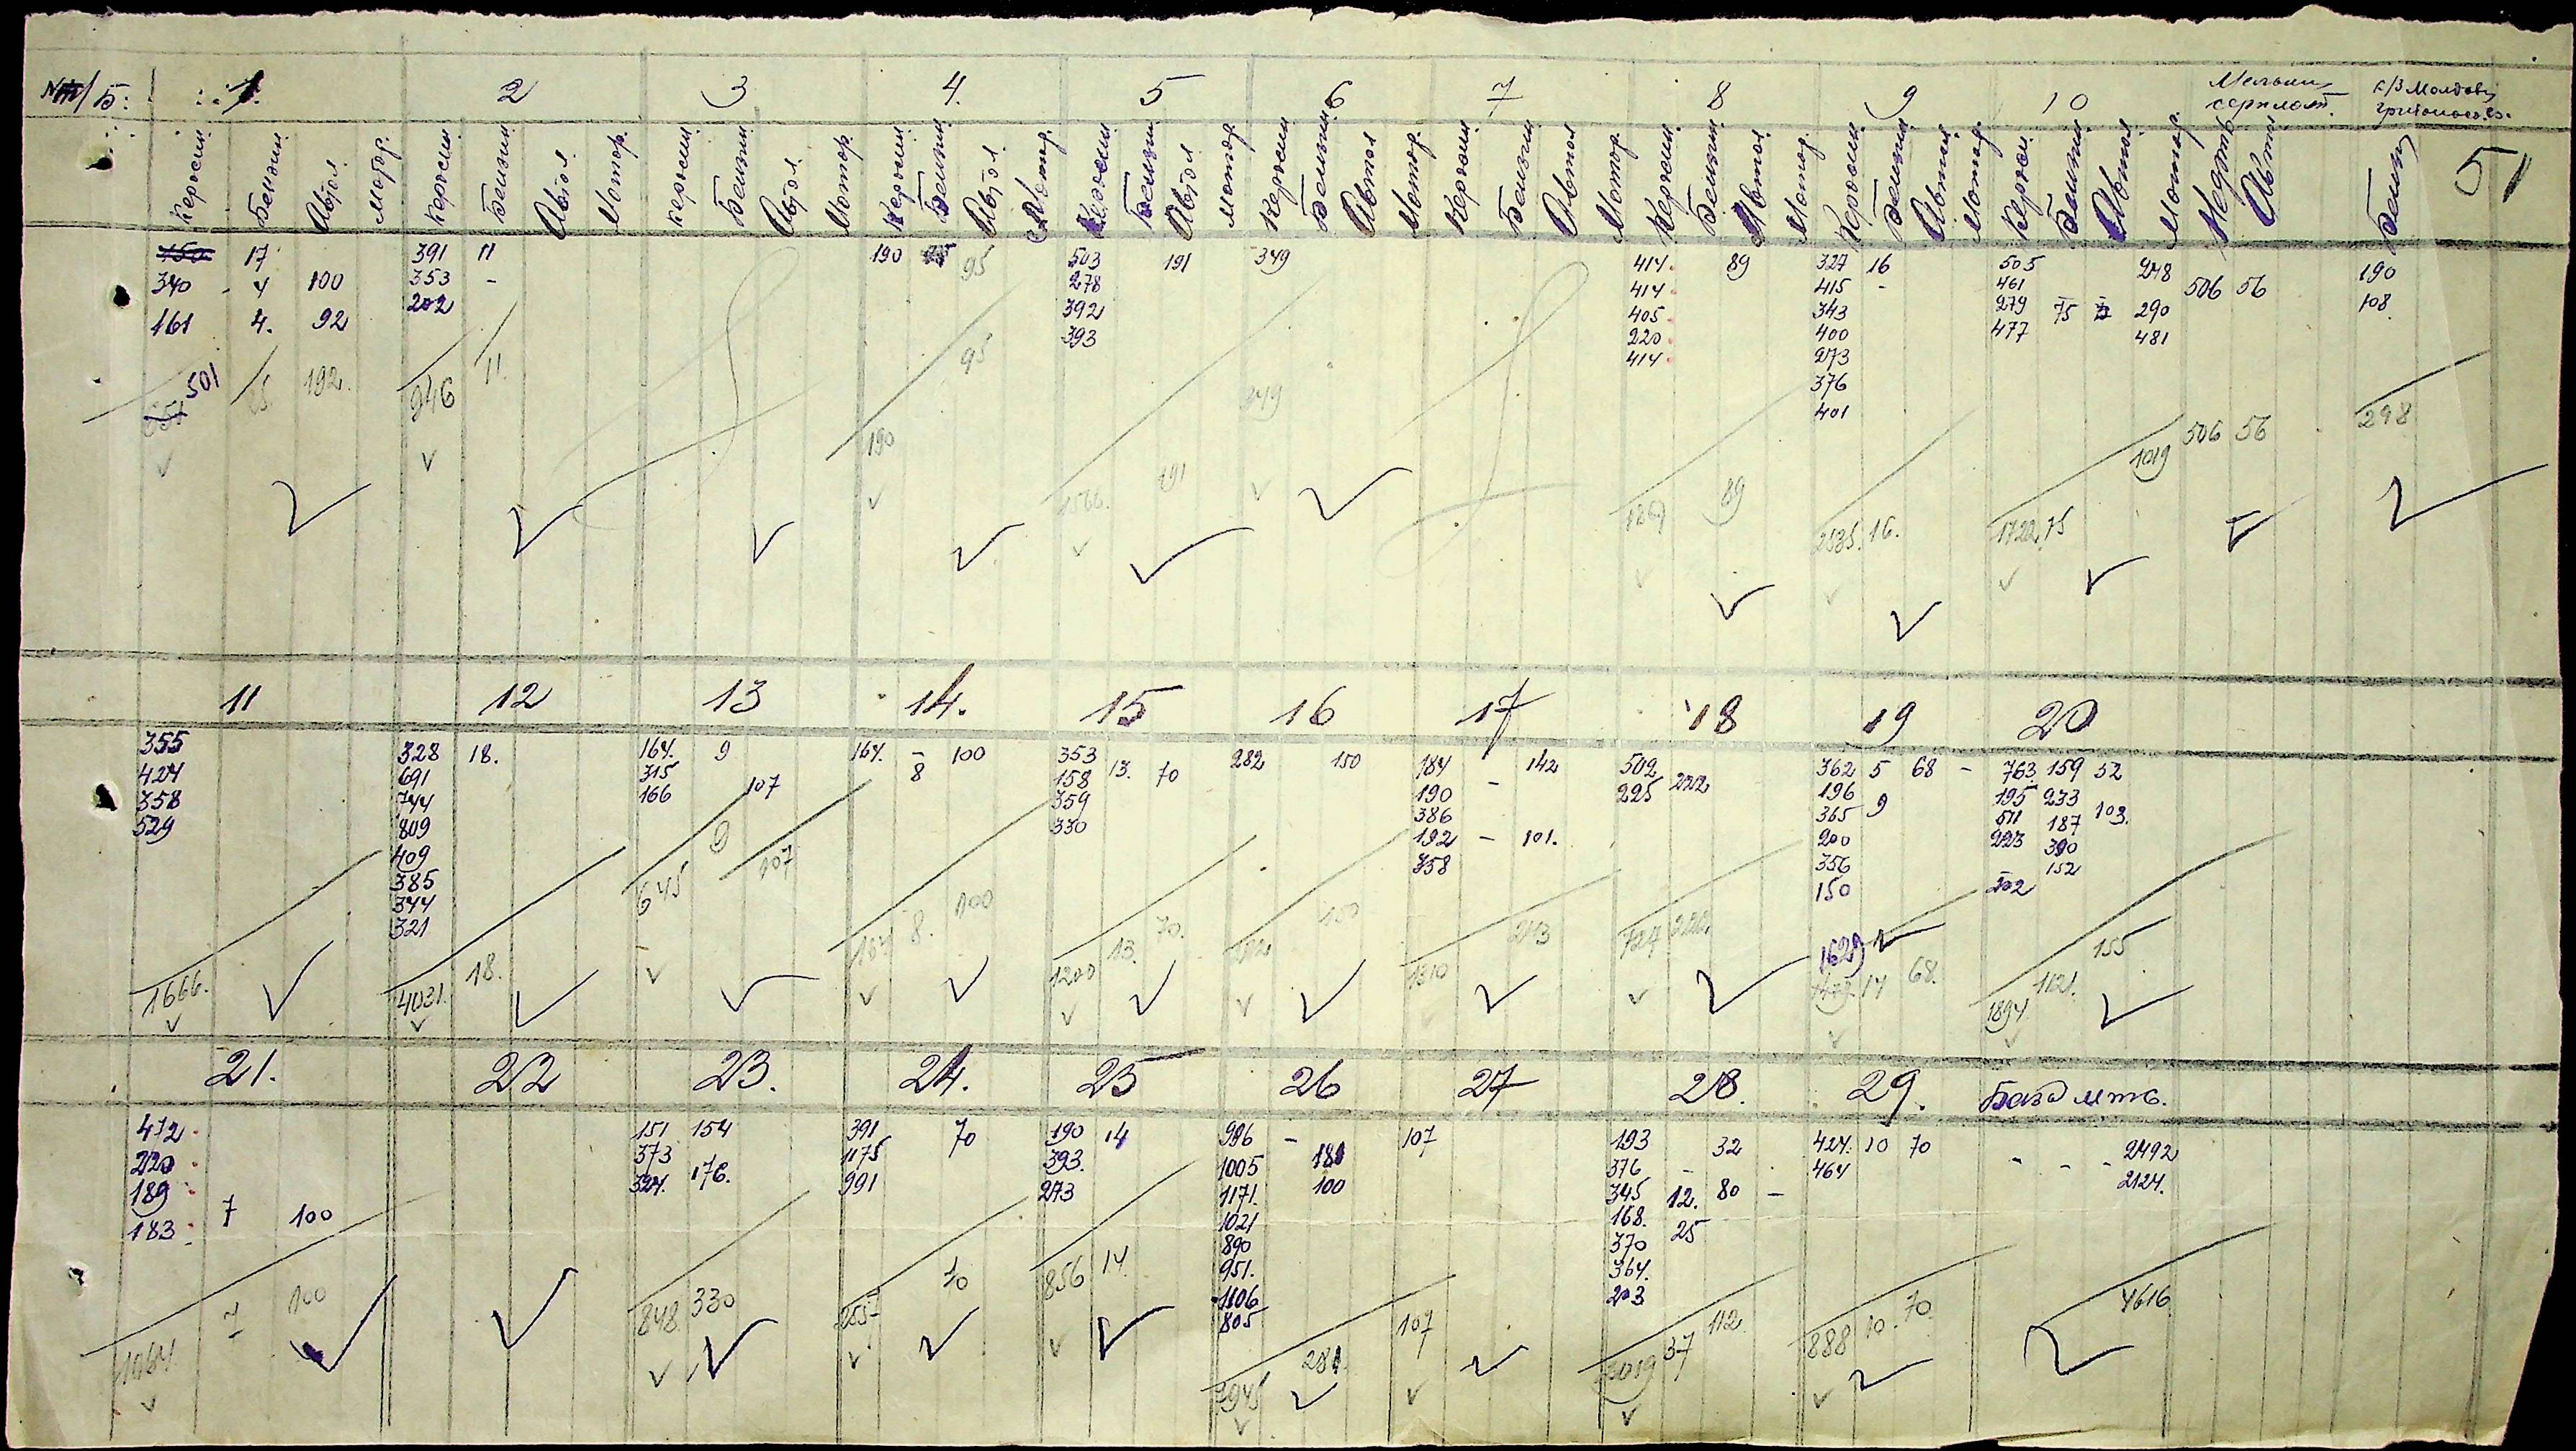 №№/Б: 1. 2 3 4. 5 6 7 8 9 10 Мельниц серплат. к/з Молдова Григориев.
Керосин Бензин Автол Мотор. Керосин Бензин Автол Мотор. Керосин Бензин Автол Мотор. Керосин Бензин Автол Мотор. Керосин Бензин Автол Мотор. Керосин Бензин Автол Мотор. Керосин Бензин Автол Мотор. Керосин Бензин Автол Мотор. Керосин Бензин Автол Мотор. Керосин Бензин Автол Мотор. Нефть Автол Бензин 51
150 17 391 11 190 95 503 191 349 414. 89 327 16 505 248 190
340 - 4 100 353 - 278 414. 415 - 461 506 56 108
161 4. 92 202 392 405. 343 279 75 290
393 220. 400 477 481
414. 273
376
401
501 192. 946 11. 95 349 506 56 298
190 1019
1566. 191 1867 89 2535. 16. 1722 75
11 12 13 14. 15 16 17 18 19 20
355 328 18. 164. 9 164. - 100 353 282 150 184 - 142 502 222 362 5 68 - 763 159 52
424 691 315 8 158 13. 70 190 225 196 195 233
358 744 166 107 359 386 365 9 511 187 103.
529 809 330 192 - 101. 200 223 390
409 358 356 152
385 150 202
344
321
645 9 107
164 8. 100 13. 70. 282 150 243 724 222.
1666. 4031. 18. 1200 1310 1629 14 68. 1894 1121. 155
21. 22 23. 24. 25 26 27 28. 29. База мтс.
472. 151 154 391 70 190 14 996 - 107 193 32 424. 10 70 - - - 2492
220. 373 176. 1175 393. 1005 181 376 - 464 2124.
189. 324. 991 273 1171. 100 345 12. 80 -
183. 7 100 1021 168. 25
890 370
951. 364.
1106 203
805
7 100 848 330 255 70 856 14. 107 112. 888 10. 70. 4616
1064 3945 281. 2019 37